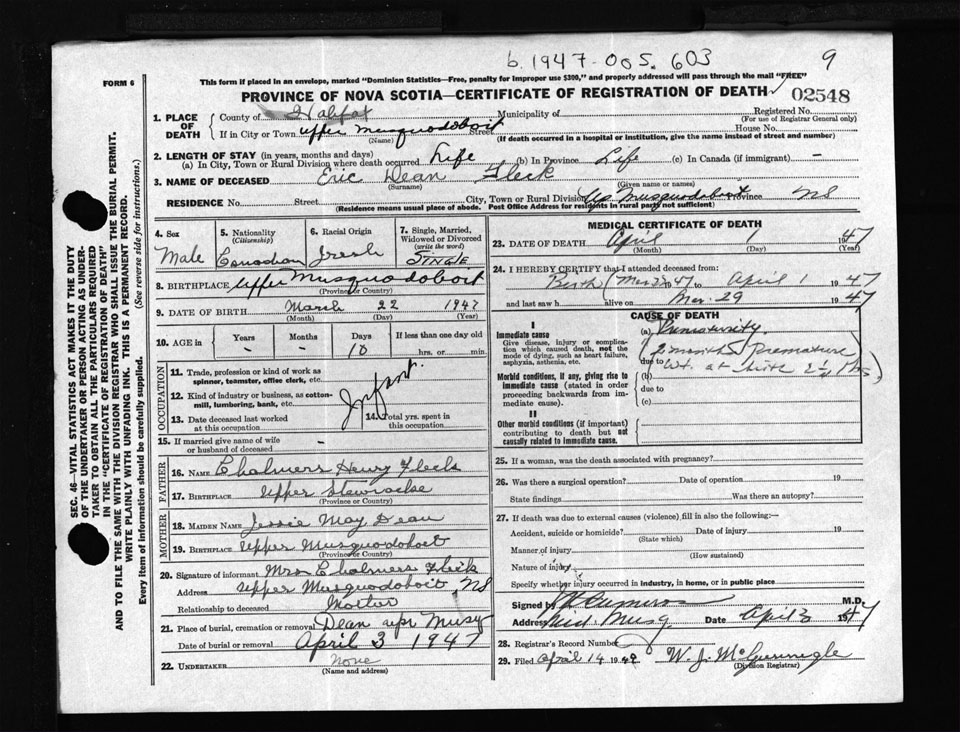 b. 1947-005. 603
9
FORM 6
This form if placed in an envelope, marked "Dominion Statistics—Free, penalty for improper use $300," and properly addressed will pass through the mail "FREE"
PROVINCE OF NOVA SCOTIA—CERTIFICATE OF REGISTRATION OF DEATH
02548
SEC. 46—VITAL STATISTICS ACT MAKES IT THE DUTY
OF THE UNDERTAKER OR PERSON ACTING AS UNDER-
TAKER TO OBTAIN ALL THE PARTICULARS REQUIRED
IN THE "CERTIFICATE OF REGISTRATION OF DEATH"
AND TO FILE THE SAME WITH THE DIVISION REGISTRAR WHO SHALL ISSUE THE BURIAL PERMIT.
WRITE PLAINLY WITH UNFADING INK. THIS IS A PERMANENT RECORD.
Every item of Information should be carefully supplied. (See reverse side for instructions.)
1. PLACE OF DEATH County of Halifax Municipality of Registered No.
(For use of Registrar General only)
If in City or Town Upper Musquodoboit Street House No.
(Name) (If death occurred in a hospital or institution, give the name instead of street and number)
2. LENGTH OF STAY (in years, months and days)
(a) In City, Town or Rural Division where death occurred Life (b) In Province Life (c) In Canada (if immigrant) -
3. NAME OF DECEASED Eric Dean Fleck
(Surname) (Given name or names)
RESIDENCE No. Street City, Town or Rural Division Up Musquodoboit Province NS
(Residence means usual place of abode. Post Office Address for residents in rural parts not sufficient)
4. Sex Male
5. Nationality (Citizenship) Canadian
6. Racial Origin Irish
7. Single, Married, Widowed or Divorced (write the word) SINGLE
8. BIRTHPLACE Upper Musquodoboit
(Province or Country)
9. DATE OF BIRTH March 22 1947
(Month) (Day) (Year)
10. AGE in Years - Months - Days 10 If less than one day old hrs. or min.
OCCUPATION
11. Trade, profession or kind of work as spinner, teamster, office clerk, etc.
12. Kind of industry or business, as cotton-mill, lumbering, bank, etc.
Infant.
13. Date deceased last worked at this occupation
14. Total yrs. spent in this occupation
15. If married give name of wife or husband of deceased -
FATHER
16. NAME Chalmers Henry Fleck
17. BIRTHPLACE Upper Stewiacke
(Province or Country)
MOTHER
18. MAIDEN NAME Jessie May Dean
19. BIRTHPLACE Upper Musquodoboit
(Province or Country)
20. Signature of informant Mrs Chalmers Fleck
Address Upper Musquodoboit, NS
Relationship to deceased Mother
21. Place of burial, cremation or removal Dean upr Musq
Date of burial or removal April 3 1947
22. UNDERTAKER None
(Name and address)
MEDICAL CERTIFICATE OF DEATH
23. DATE OF DEATH April 1 1947
(Month) (Day)
24. I HEREBY CERTIFY that I attended deceased from:
Birth (Mar 22 1947 to April 1 1947
and last saw h alive on Mar. 29 1947
CAUSE OF DEATH
I
Immediate cause
Give disease, injury or complication which caused death, not the mode of dying, such as heart failure, asphyxia, asthenia, etc.
(a) Prematurity.
2 months premature
due to
Wt. at birth
Morbid conditions, if any, giving rise to immediate cause (stated in order proceeding backwards from immediate cause).
(b)
due to
(c)
II
Other morbid conditions (if important) contributing to death but not causally related to immediate cause.
25. If a woman, was the death associated with pregnancy?
26. Was there a surgical operation? Date of operation 19
State findings Was there an autopsy?
27. If death was due to external causes (violence) fill in also the following:—
Accident, suicide or homicide? Date of injury 19
(State which)
Manner of injury
(How sustained)
Nature of injury
Specify whether injury occurred in industry, in home, or in public place
Signed by Cameron M.D.
Address Mid. Musq. Date April 3 1947
28. Registrar's Record Number
29. Filed April 14 19 W. J. McGunnigle
(Division Registrar)